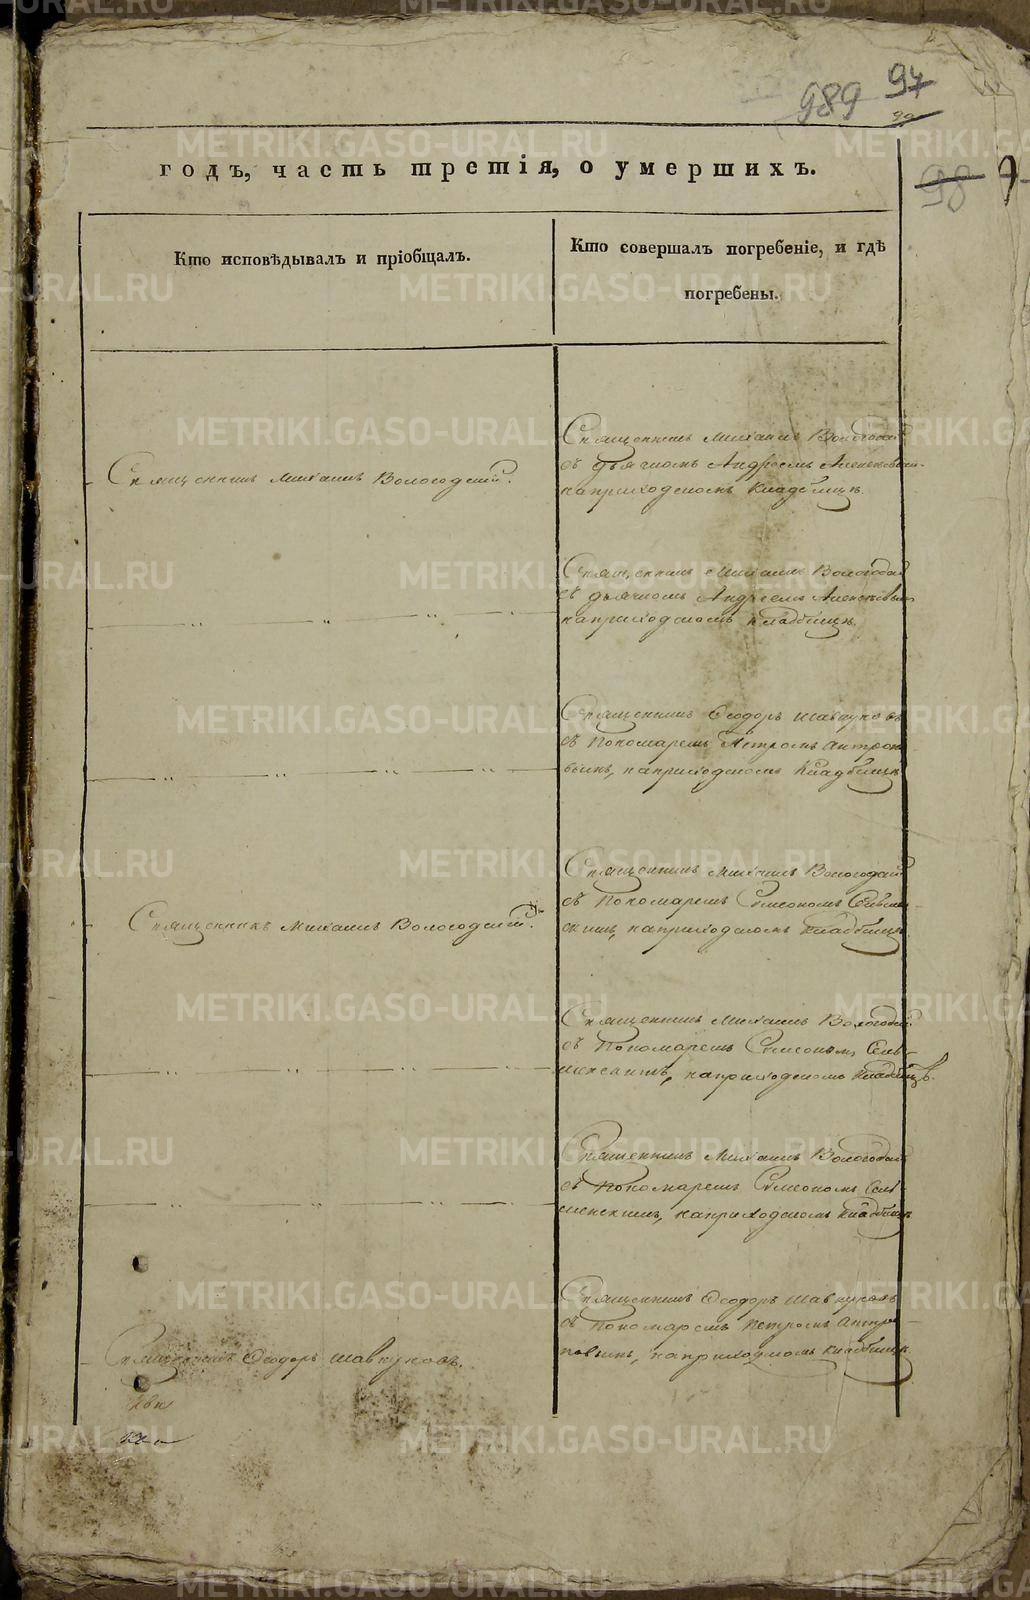 989 94
90
98
годъ, часть третія, о умершихъ.
Кто исповѣдывалъ и пріобщалъ.
Кто совершалъ погребеніе, и гдѣ
погребены.
Священникъ Михаилъ Вологодскій.
Священникъ Михаилъ Вологодскій
съ дьячкомъ Андреемъ
на приходскомъ кладбищѣ.
Священникъ Михаилъ Вологодскій
съ дьячкомъ Андреемъ
на приходскомъ кладбищѣ.
Священникъ Ѳеодоръ Шавкуновъ
съ пономаремъ Петромъ Антропо
вымъ, на приходскомъ кладбищѣ
Священникъ Михаилъ Вологодскій.
Священникъ Михаилъ Вологодскій
съ пономаремъ Симеономъ
скимъ, на приходскомъ кладбищѣ
Священникъ Михаилъ Вологодскій
съ пономаремъ Симеономъ Сель-
менскимъ, на приходскомъ кладбищѣ.
Священникъ Михаилъ Вологодскій
съ пономаремъ Симеономъ Сель-
менскимъ, на приходскомъ кладбищѣ
Священникъ Ѳеодоръ Шавкуновъ.
Священникъ Ѳеодоръ Шавкуновъ
съ пономаремъ Петромъ Антро
повымъ, на приходскомъ кладбищѣ
METRIKI.GASO-URAL.RU